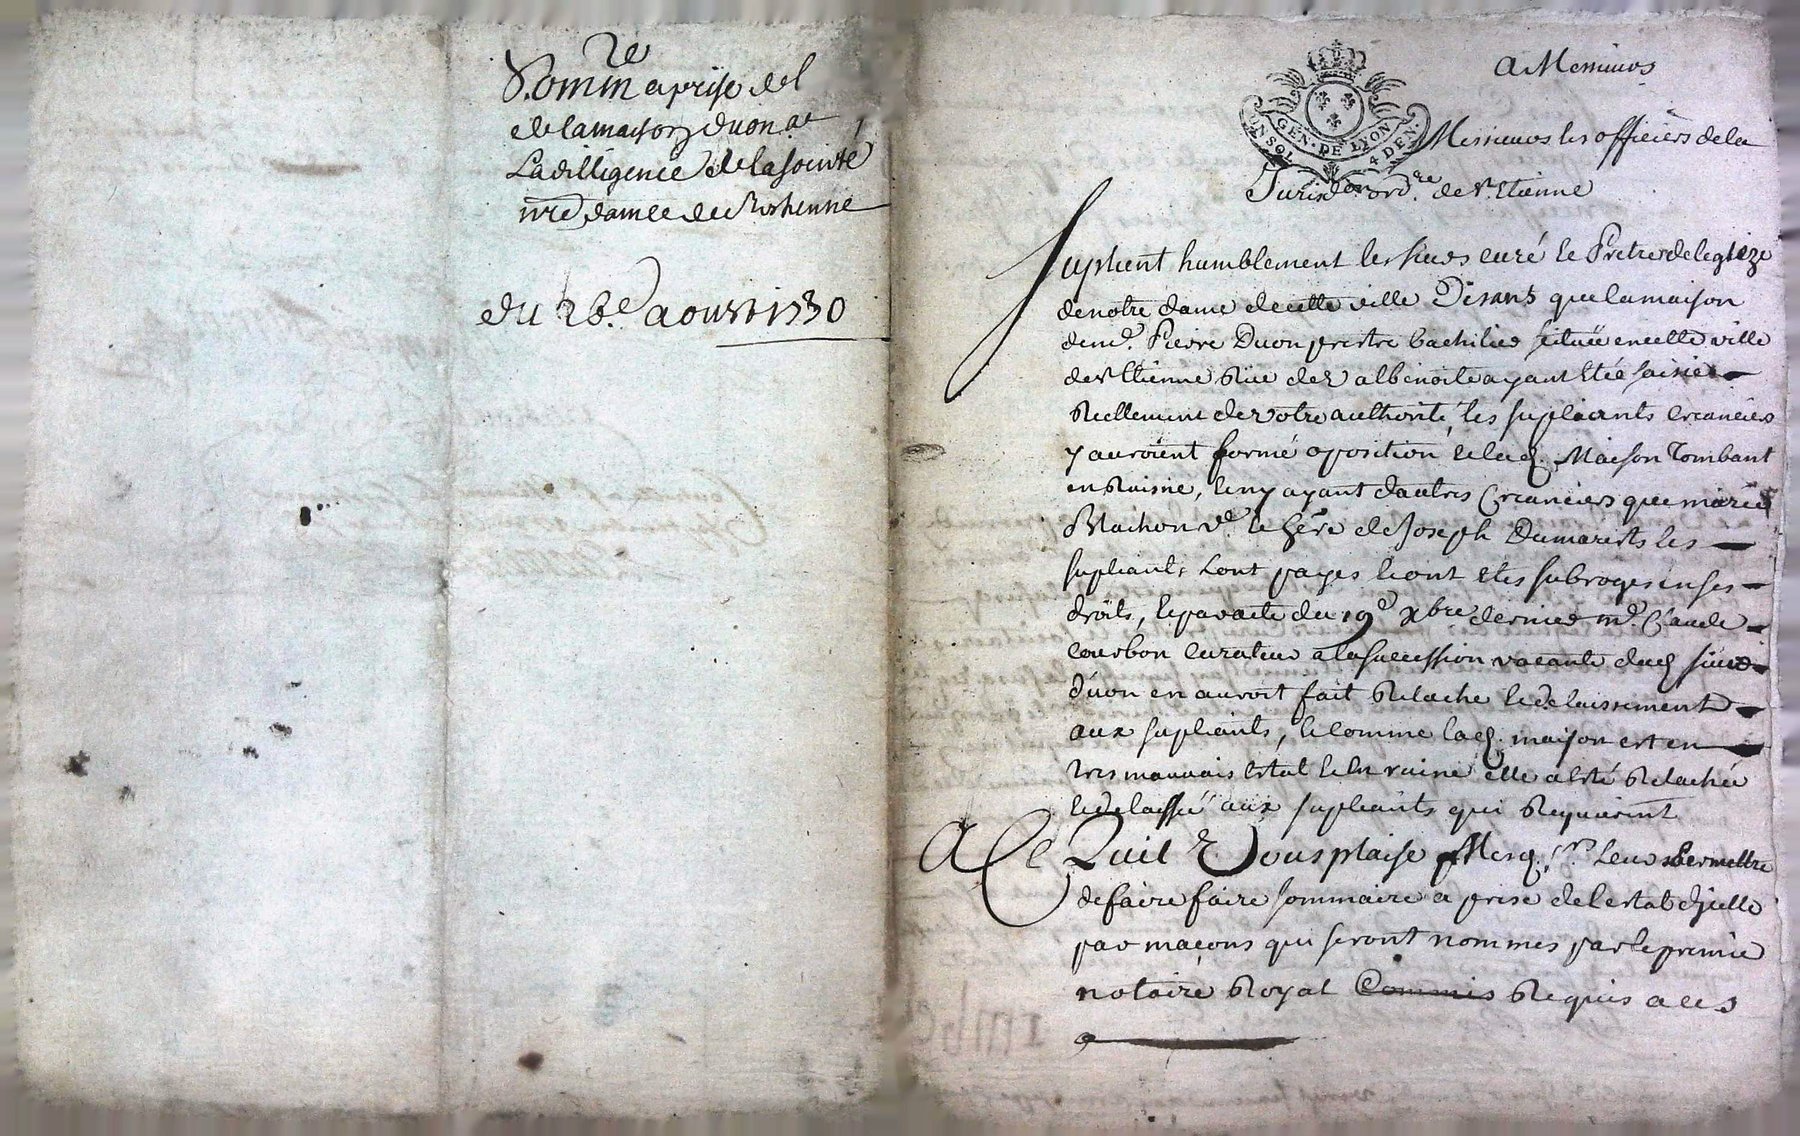 Somm re aprise del
de la maison duon a e
La dilligence de la sointé
nre dame de St Estienne
du 26.e aoust 1730
A Messieurs
Messieurs les officiers de la
Jurisd.on ord.re de St Etienne
GEN. DE LYON
4 DEN.
Suplient humblement les sieurs curé & Pretres de leglize
de notre dame de cette ville Disants que la maison
de m.e Pierre Duon prestre bachilier scituée en cette ville
de St Etienne Rüe de albenoite ayant Etée saisie
Reellement de votre authorité, les supliants creanciers
y auroient formé oposition & lad. Maison Tombant
en Ruisne, & ny ayant dautres Creanciers que marie
Blachon v.e & here de Joseph Dumarests les
supliants Lont payes & ont Etes subroges en ses
droits, & par acte du 19e Xbre dernier m.e Claude
Courbon curateur a la succession vacante dud sieur
duon en auroit fait Relache & delaissement
aux supliants, & comme lad. maison est en
tres mauvais Estat & en ruine elle a esté Relachée
& delaissée aux supliants qui Requierent
A Ce Quil Vous plaise Mesd. Srs Leur Permettre
de faire faire sommaire aprise de lestat dicelle
par maçons qui seront nommes par le premier
notaire Royal Commis Requis a ces